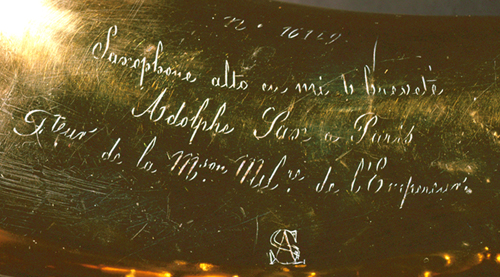 N° 16129
Saxophone alto en mi b breveté
Adolphe Sax a Paris
Fteur de la Mson Milre de l'Empereur
AS